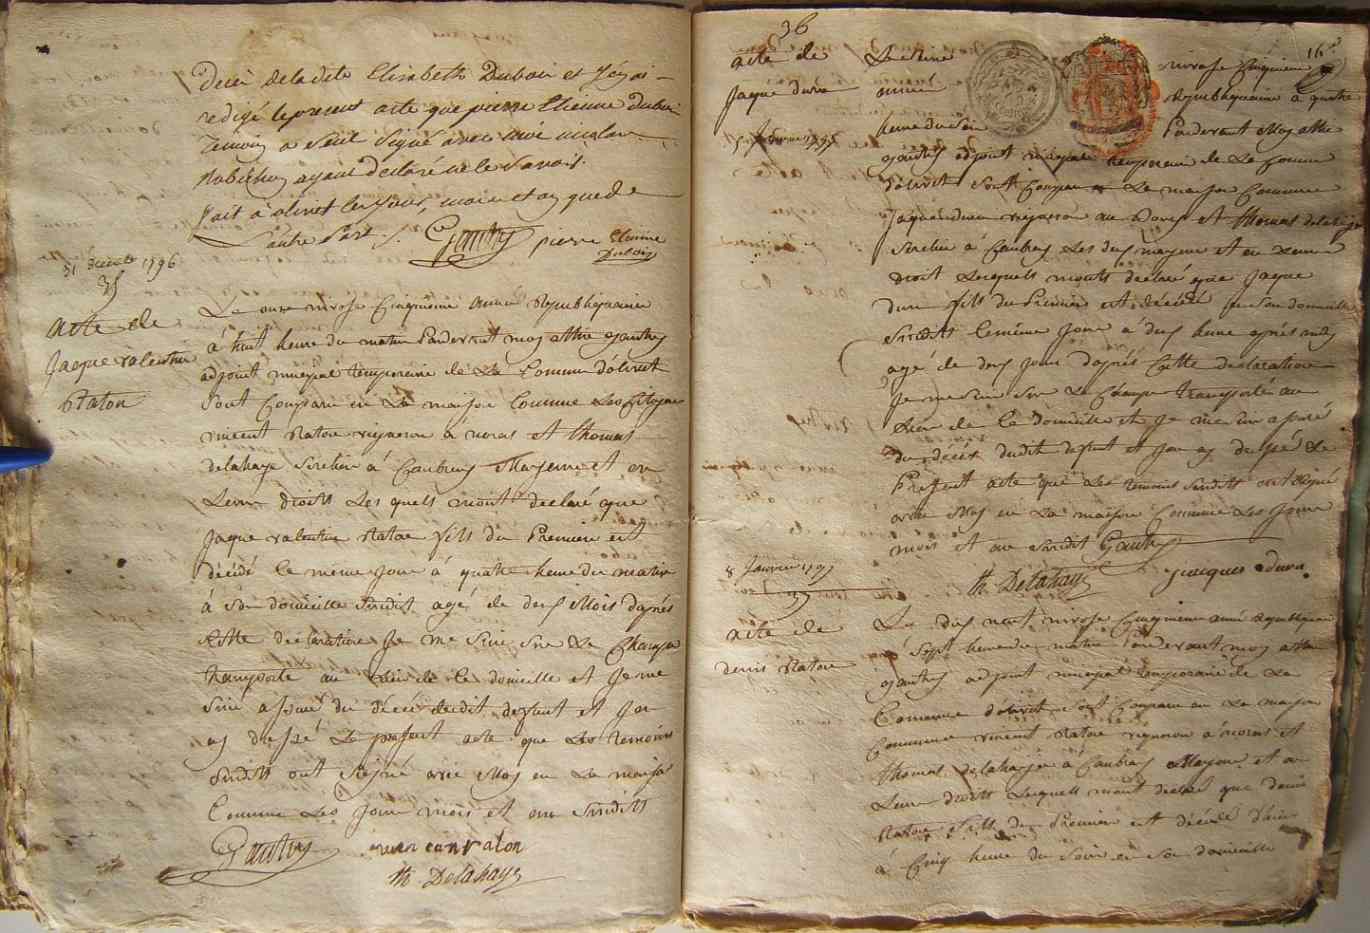 décès de ladite Elisabeth Duboin et j'ai
redigé le present acte que pierre Etienne duboin
Temoin a seul Signé avec moi nicolas
Robichon ayant declaré ne le Savoir
fait à olivet les jour, mois et an que de
L'autre Part ./. Gautry pierre Etienne
Duboin
31 Decembre 1796
35
acte de
Jaque valentin
Raton
Le onze nivose Cinquieme année Republiquaine
à huit heure du matin Pardevant moy
adjoint municipal temporaire de la Commune d'olivet
Sont Comparu en La maison Commune Les Citoyens
vincent Raton vigneron à noras et thomas
delahaye Serclier à Caubray Mageure et on
Leurs droits Les quels m'ont declaré que
Jaque valentin Raton fils du Premier est
décédé le meme Jour à quatre heure du matin
à Son domicille Susdit agé de deux Mois d'après
cette declaration Je me Suis Sur le Champ
transporté au Lieu de le domicille et Je me
Suis assuré du décès dudit defunt et J'en
ay dressé Le present acte que Les temoins
Susdits ont Signé avec Moy en La maison
Commune Les Jour mois et an Susdits
Gautry vincen raton
th. Delahaye
36
16
acte de
Jaque duru
Le
nivose Cinquieme
année
Republiquaine à quatre
heure du Soir
Pardevant Moy
adjoint municipal temporaire de La Commune
d'olivet Sont Comparu en La maison Commune
Jaque duru vigneron au et thomas delahaye
Serclier à Caubray Les deux mageure et on Leurs
droit Lesquels m'ont declaré que Jaque
duru fils du Premier est décédé en Son domicille
Susdit le même Jour à deux heure après midy
agé de deux Jour d'après Cette declaration
Je me Suis Sur Le Champ transporté au
Lieu de le domicille et Je me suis assuré
du décès dudit defunt et J'en ay dressé Le
Present acte que Les temoins Susdits ont Signé
avec Moy en La maison Commune Les Jour
mois et an Susdit Gautry
th. Delahaye jacques duru
8 Janvier 1797
37
acte de
denis Raton
Le dix neuf nivose Cinquieme année Republiquaine
à Sept heure du matin Pardevant moy
adjoint municipal temporaire de La
Commune d'olivet Sont Comparu en La maison
Commune vincent Raton vigneron à noras et
thomas delahaye à Caubray Mageure et on
Leurs droits Lesquels m'ont declaré que denis
Raton fils du Premier est décédé d'hier
à Cinq heure du Soir en Son domicille